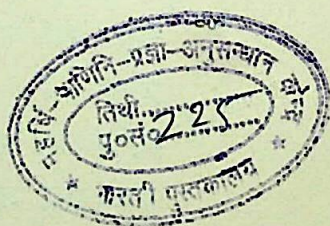 महर्षि-पाणिनि-प्रज्ञा-अनुसन्धान केन्द्र
तिथी..............
पु०सं० 225
* भारती पुस्तकालय *